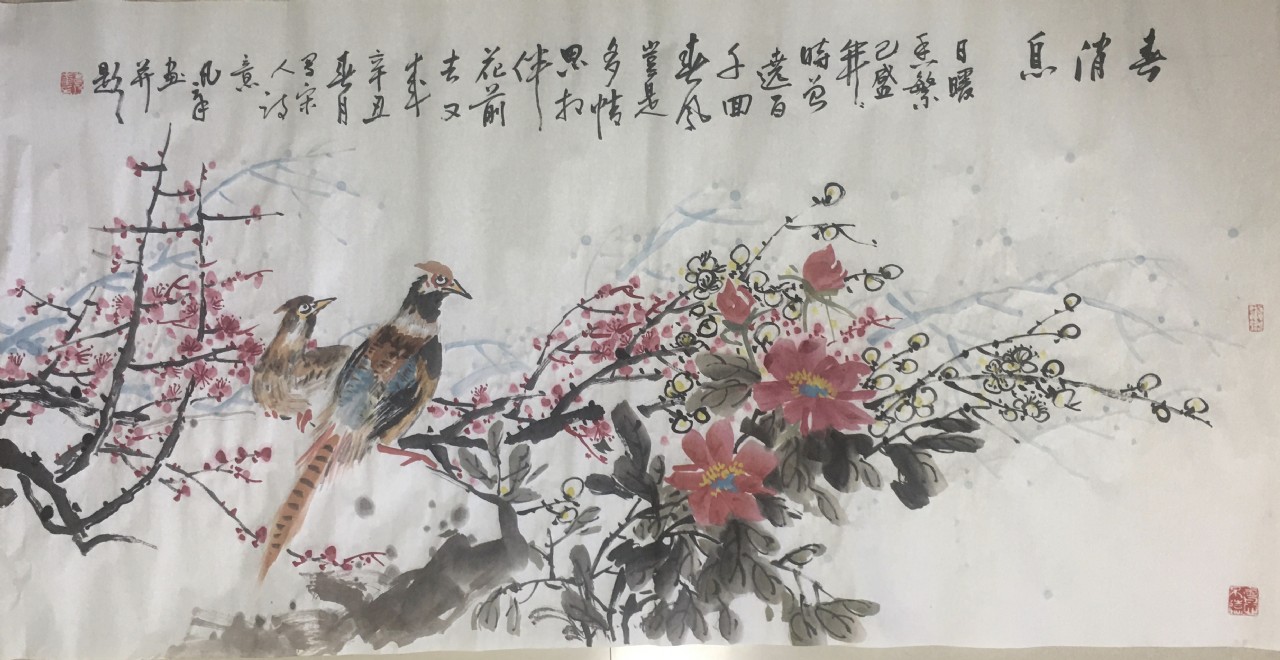 春消息
日暖
香繁
已盛
开々
時曾
遶百
千回
春風
豈是
多情
思相
伴
花前
去又
来
辛丑
春月
写宋
人诗
意
凡
画
并
题